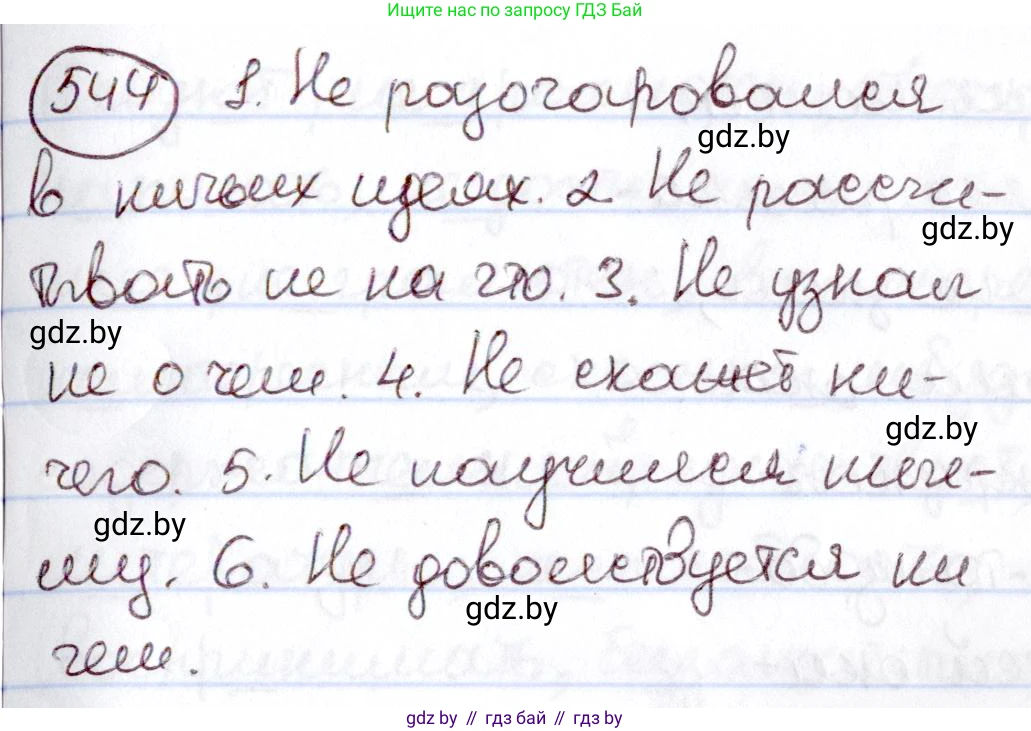 Ищите нас по запросу ГДЗ Бай
544 1. Не разочаровался
gdz.by
в ничьих идеях. 2 Не рассчи-
gdz.by
тывать не на что. 3. Не узнал
gdz.by
не о чем. 4. Не скажет ни-
gdz.by
чего. 5. Не научился ниче-
gdz.by
му. 6. Не довольствуется ни
gdz.by
чем.
gdz.by // гдз бай // гдз by